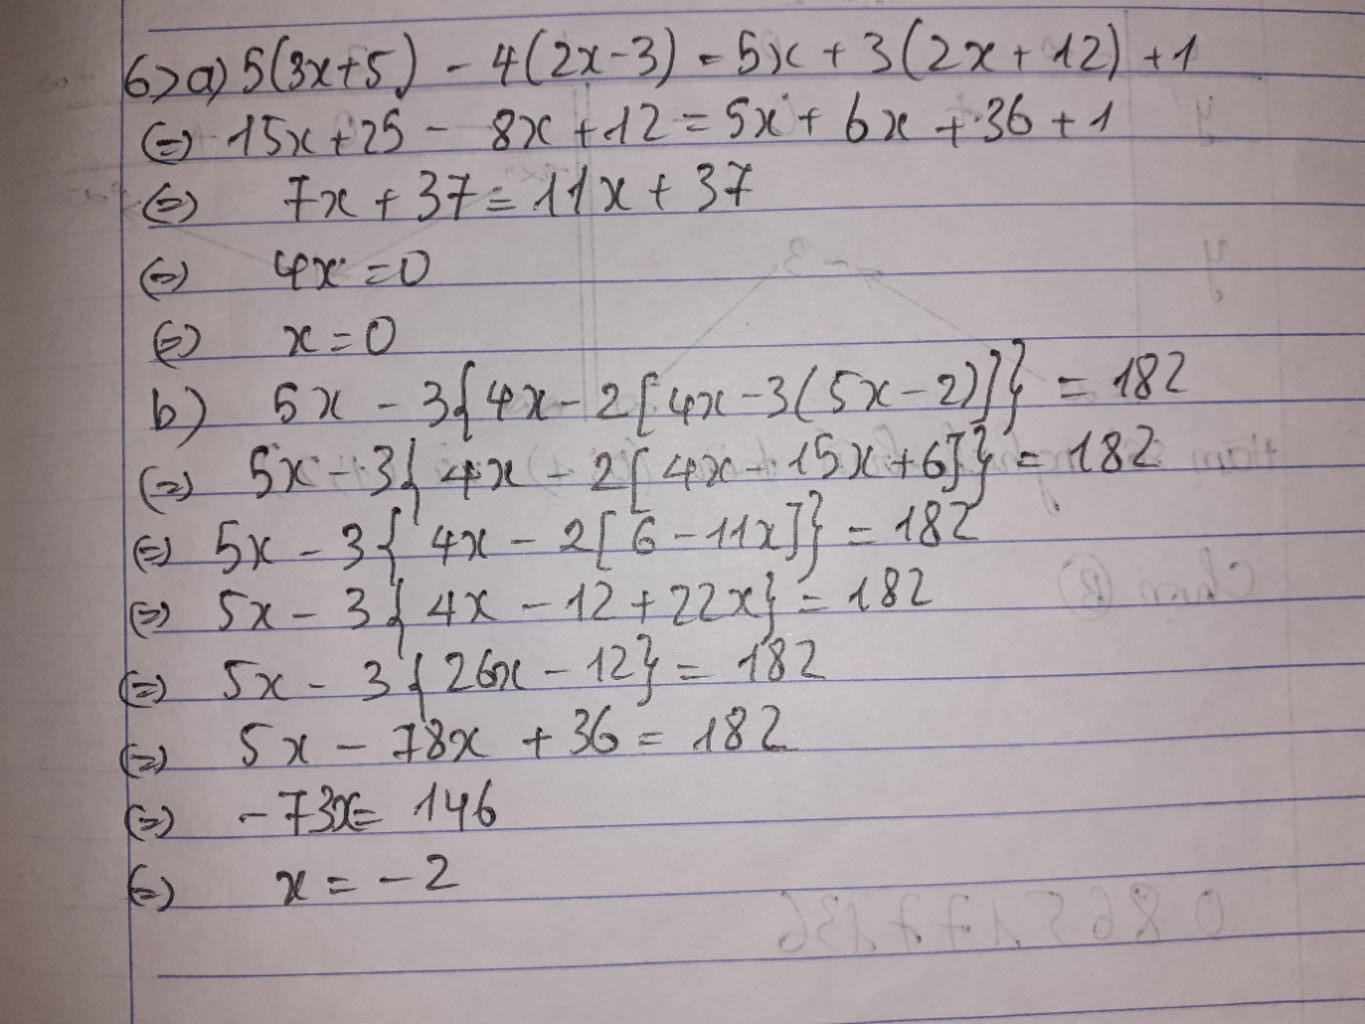 6>a) 5(3x+5) - 4(2x-3) = 5x + 3(2x + 12) +1
(=) 15x + 25 - 8x + 12 = 5x + 6x + 36 + 1
(=) 7x + 37 = 11x + 37
(=) 4x = 0
(=) x = 0
b) 5x - 3{4x - 2[4x - 3(5x - 2)]} = 182
(=) 5x - 3{4x - 2[4x - 15x + 6]} = 182
(=) 5x - 3{4x - 2[6 - 11x]} = 182
(=) 5x - 3{4x - 12 + 22x} = 182
(=) 5x - 3{26x - 12} = 182
(=) 5x - 78x + 36 = 182
(=) -73x = 146
(=) x = -2